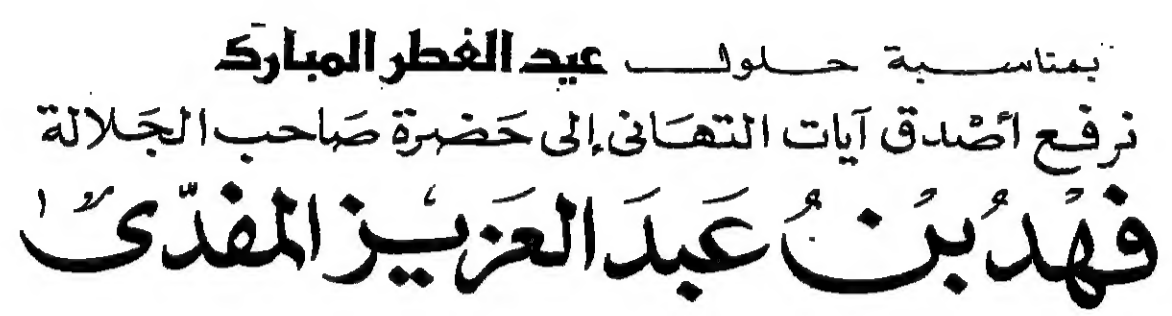 بمناسبة حلول عيد الفطر المبارك
نرفع أصدق آيات التهاني إلى حضرة صاحب الجلالة
فهد بن عبد العزيز المفدى